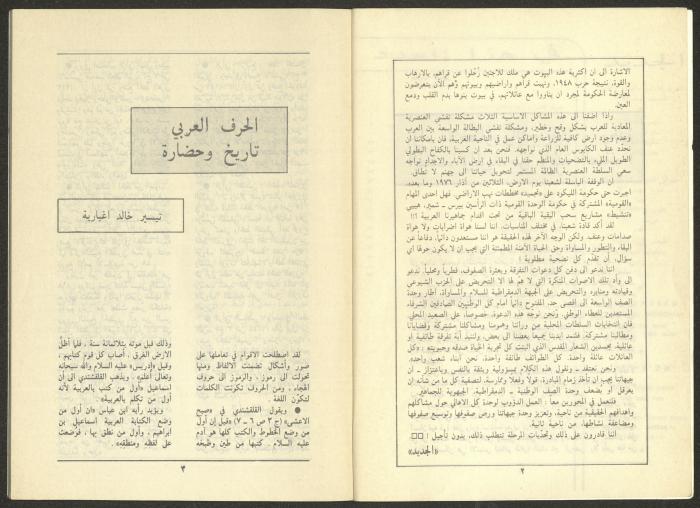 الاشارة الى ان اكثرية هذه البيوت هي ملك للاجئين رُحّلوا عن قراهم، بالارهاب
والقوة، نتيجة حرب ١٩٤٨، ونهبت قراهم واراضيهم وبيوتهم وهم الآن يتعرضون
لمعارضة الحكومة لمجرد ان يناووا مع عائلاتهم، في بيوت بنوها بدم القلب ودمع
العين.
واذا اضفنا الى هذه المشاكل الاساسية الثلاث مشكلة تفشي العنصرية
المعادية للعرب بشكل وقح وخطير، ومشكلة تفشي البطالة الواسعة بين العرب
وعدم وجود ارض كافية للزراعة واماكن عمل في الناحية العربية، فان بامكاننا ان
نحدد عنف الكابوس العام الذي نواجهه. فنحن بعد ان كسبنا بالكفاح البطولي
الطويل المليء بالتضحيات والمنظم حقنا في البقاء في ارض الآباء والاجداد نواجه
سعي السلطة العنصرية الظالمة المستمر لتحويل حياتنا الى جهنم لا تطاق.
ان الوقفة الباسلة لشعبنا يوم الارض، الثلاثين من آذار ١٩٧٦ وما بعده،
اجبرت حتى حكومة الليكود على «تجميد» مخططات نهب الاراضي. فهل احدى المهام
«القومية» المشتركة في حكومة الوحدة القومية ذات الرأسين بيرس ـ شمير، هيبي
«تنشيط» مشاريع سحب البقية الباقية من تحت اقدام جماهيرنا العربية ؟!!
لقد أكد قادة شعبنا، في مختلف المناسبات، اننا لسنا هواة اضرابات ولا هواة
صدامات وعنف. ولكن الوجه الآخر لهذه الحقيقة هو اننا مستعدون دائماً، دفاعاً عن
البقاء والتطور والمساواة وحق الحياة الآمنة المطمئنة التي يجب ان لا يكون حولها اي
سؤال، أن نقدّم كل تضحية مطلوبة !
اننا ندعو الى دفن كل دعوات التفرقة وبعثرة الصفوف، قطرياً ومحلياً. ندعو
الى وأد تلك الاصوات المنكرة التي لا همّ لها الا التحريض على الحزب الشيوعي
وقيادته ومنابره والتحريض على الجبهة الديمقراطية للسلام والمساواة، اطار وحدة
الصف الواسعة الى اقصى حد. المفتوح دائماً امام كل الوطنيين الصادقين الشرفاء
المستعدين للعطاء الوطني. ونحن نوجّه هذه الدعوة، خصوصاً، على الصعيد المحلي.
فان انتخابات السلطات المحلية من ورائنا وهمومنا ومشاكلنا مشتركة وقضايانا
ومطالبنا مشتركة. فلنمد ايدينا جميعاً بعضنا الى بعض، ولننبذ أية تفرقة طائفية او
عائلية. مجسدين الشعار المقدس الذي اثبتت كل تجربة الحياة صدقه وحيويته : «كل
العائلات عائلة واحدة. كل الطوائف طائفة واحدة، نحن ابناء شعب واحد».
ونحن نعتقد ـ ونقول هذه الكلام بمسؤولية وبثقة بالنفس وباعتزاز ـ ان
جبهاتنا يجب ان تأخذ زمام المبادرة، قولاً وفعلاً وممارسة، لتصفية كل ما من شأنه ان
يعرقل او يضعف وحدة الصف الوطنية ـ الديمقراطية، الجبهوية للجماهير.
فلنعمل في المحورين معاً : العمل الدؤوب لوحدة كل الاهالي حول مشاكلهم
واهدافهم الحقيقية من ناحية، وتعزيز وحدة جبهاتنا ورص صفوفها وتوسيع صفوفها
ومضاعفة نشاطها، من ناحية ثانية.
اننا قادرون على ذلك وتحديات المرحلة تتطلب ذلك، بدون تأجيل ! □□
«الجديد»
٢
الحرف العربي
تاريخ وحضارة
تيسير خالد اغبارية
لقد اصطلحت الاقوام في تعاملها على
صور وأشكال تضمنت الالفاظ ومنها
تحولت الى رموز، والرموز الى حروف
الهجاء، ومن الحروف تكونت الكلمات
لتكوّن اللغة.
● ويقول القلقشندي في «صبح
الاعشى» (ج ٣ ص ٦ ـ ٧) «قيل إن أول
من وضع الخطوط والكتب كلها هو آدم
عليه السلام. كتبها من طين وطبخه
وذلك قبل موته بثلاثمائة سنة، فلما أظلّ
الارض الغرق، أصاب كل قوم كتابهم،
وقيل «إدريس» عليه السلام والله سبحانه
وتعالى أعلم». ويذهب القلقشندي الى أن
اسماعيل «أول من كتب بالعربية لأنه
أول من تكلم بالعربية».
ويؤيد رأيه ابن عباس «ان أول من
وضع الكتابة العربية اسماعيل بن
ابراهيم، وأول من نطق بها، فوضعت
على لفظه ومنطقه».
٣